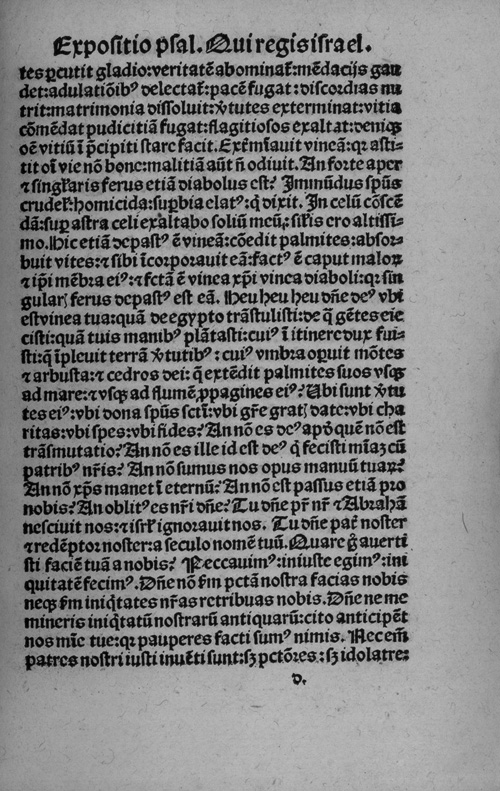 Expositio psal. Qui regis israel.
tes ꝑcutit gladio: veritatē abominat᷑: mēdacijs gau
det: adulatiōibꝰ delectat᷑: pacē fugat: discordias nu
trit: matrimonia dissoluit: v̓tutes exterminat: vitia
cōmēdat pudicitiā fugat: flagitiosos exaltat: deniqꝫ
oē vitiū ī p̄cipiti stare facit. Extm̄iauit vineā: qr asti-
tit oī vie nō bone: malitiā aūt ñ odiuit. An forte aper
⁊ singl̓aris ferus etiā diabolus est? Immūdus spūs
crudel̓: homicida: suꝑbia elatꝰ: q̇ dixit. In celū cōscē
dā: suꝑ astra celi exaltabo soliū meū: sil̓is ero altissi-
mo. Hic etiā depastꝰ ē vineā: cōedit palmites: absor-
buit vites: ⁊ sibi īcorporauit eā: factꝰ ē caput maloꝝ
⁊ ip̄i mēbra eiꝰ: ⁊ fctā ē vinea xp̄i vinea diaboli: qr sin
gularꝭ ferus depastꝰ est eā. Heu heu heu dñe deꝰ vbi
est vinea tua: quā de egypto trāstulisti: de q̄ gētes eie
cisti: quā tuis manibꝰ plātasti: cuiꝰ ī itinere dux fui-
sti: q̄ īpleuit terrā v̓tutibꝰ: cuiꝰ vmbra opuit mōtes
⁊ arbusta: ⁊ cedros dei: q̄ extēdit palmites suos vsqꝫ
ad mare: ⁊ vsqꝫ ad flumē ꝓpagines eiꝰ? Ubi sunt v̓tu
tes eiꝰ: vbi dona spūs sctī: vbi gr̄e gratꝭ date: vbi cha
ritas: vbi spes: vbi fides? An nō es deꝰ apd̓ quē nō est
trāsmutatio? An nō es ille id est deꝰ q̇ fecisti mīaꝫ cū
patribꝰ nr̄is? An nō sumus nos opus manuū tuaꝝ?
An nō xp̄s manet ī eternū? An nō est passus etiā pro
nobis? An oblitꝰ es nr̄i dñe? Tu dñe pr̄ nr̄ ⁊ Abrahā
nesciuit nos: ⁊ isrl̓ ignorauit nos. Tu dñe pat̓ noster
⁊ redēptor noster: a seculo nomē tuū. Quare g̊ auerti
sti faciē tuā a nobis? Peccauimꝰ: iniuste egimꝰ: ini
quitatē fecimꝰ. Dñe nō ẜm pctā nostra facias nobis
neqꝫ ẜm iniq̇tates nr̄as retribuas nobis. Dñe ne me
mineris iniq̇tatū nostrarū antiquarū: cito anticipēt
nos mīe tue: qr pauperes facti sumꝰ nimis. Nec em̄
patres nostri iusti inuēti sunt: sꝫ pctōres: sꝫ idolatre:
d.